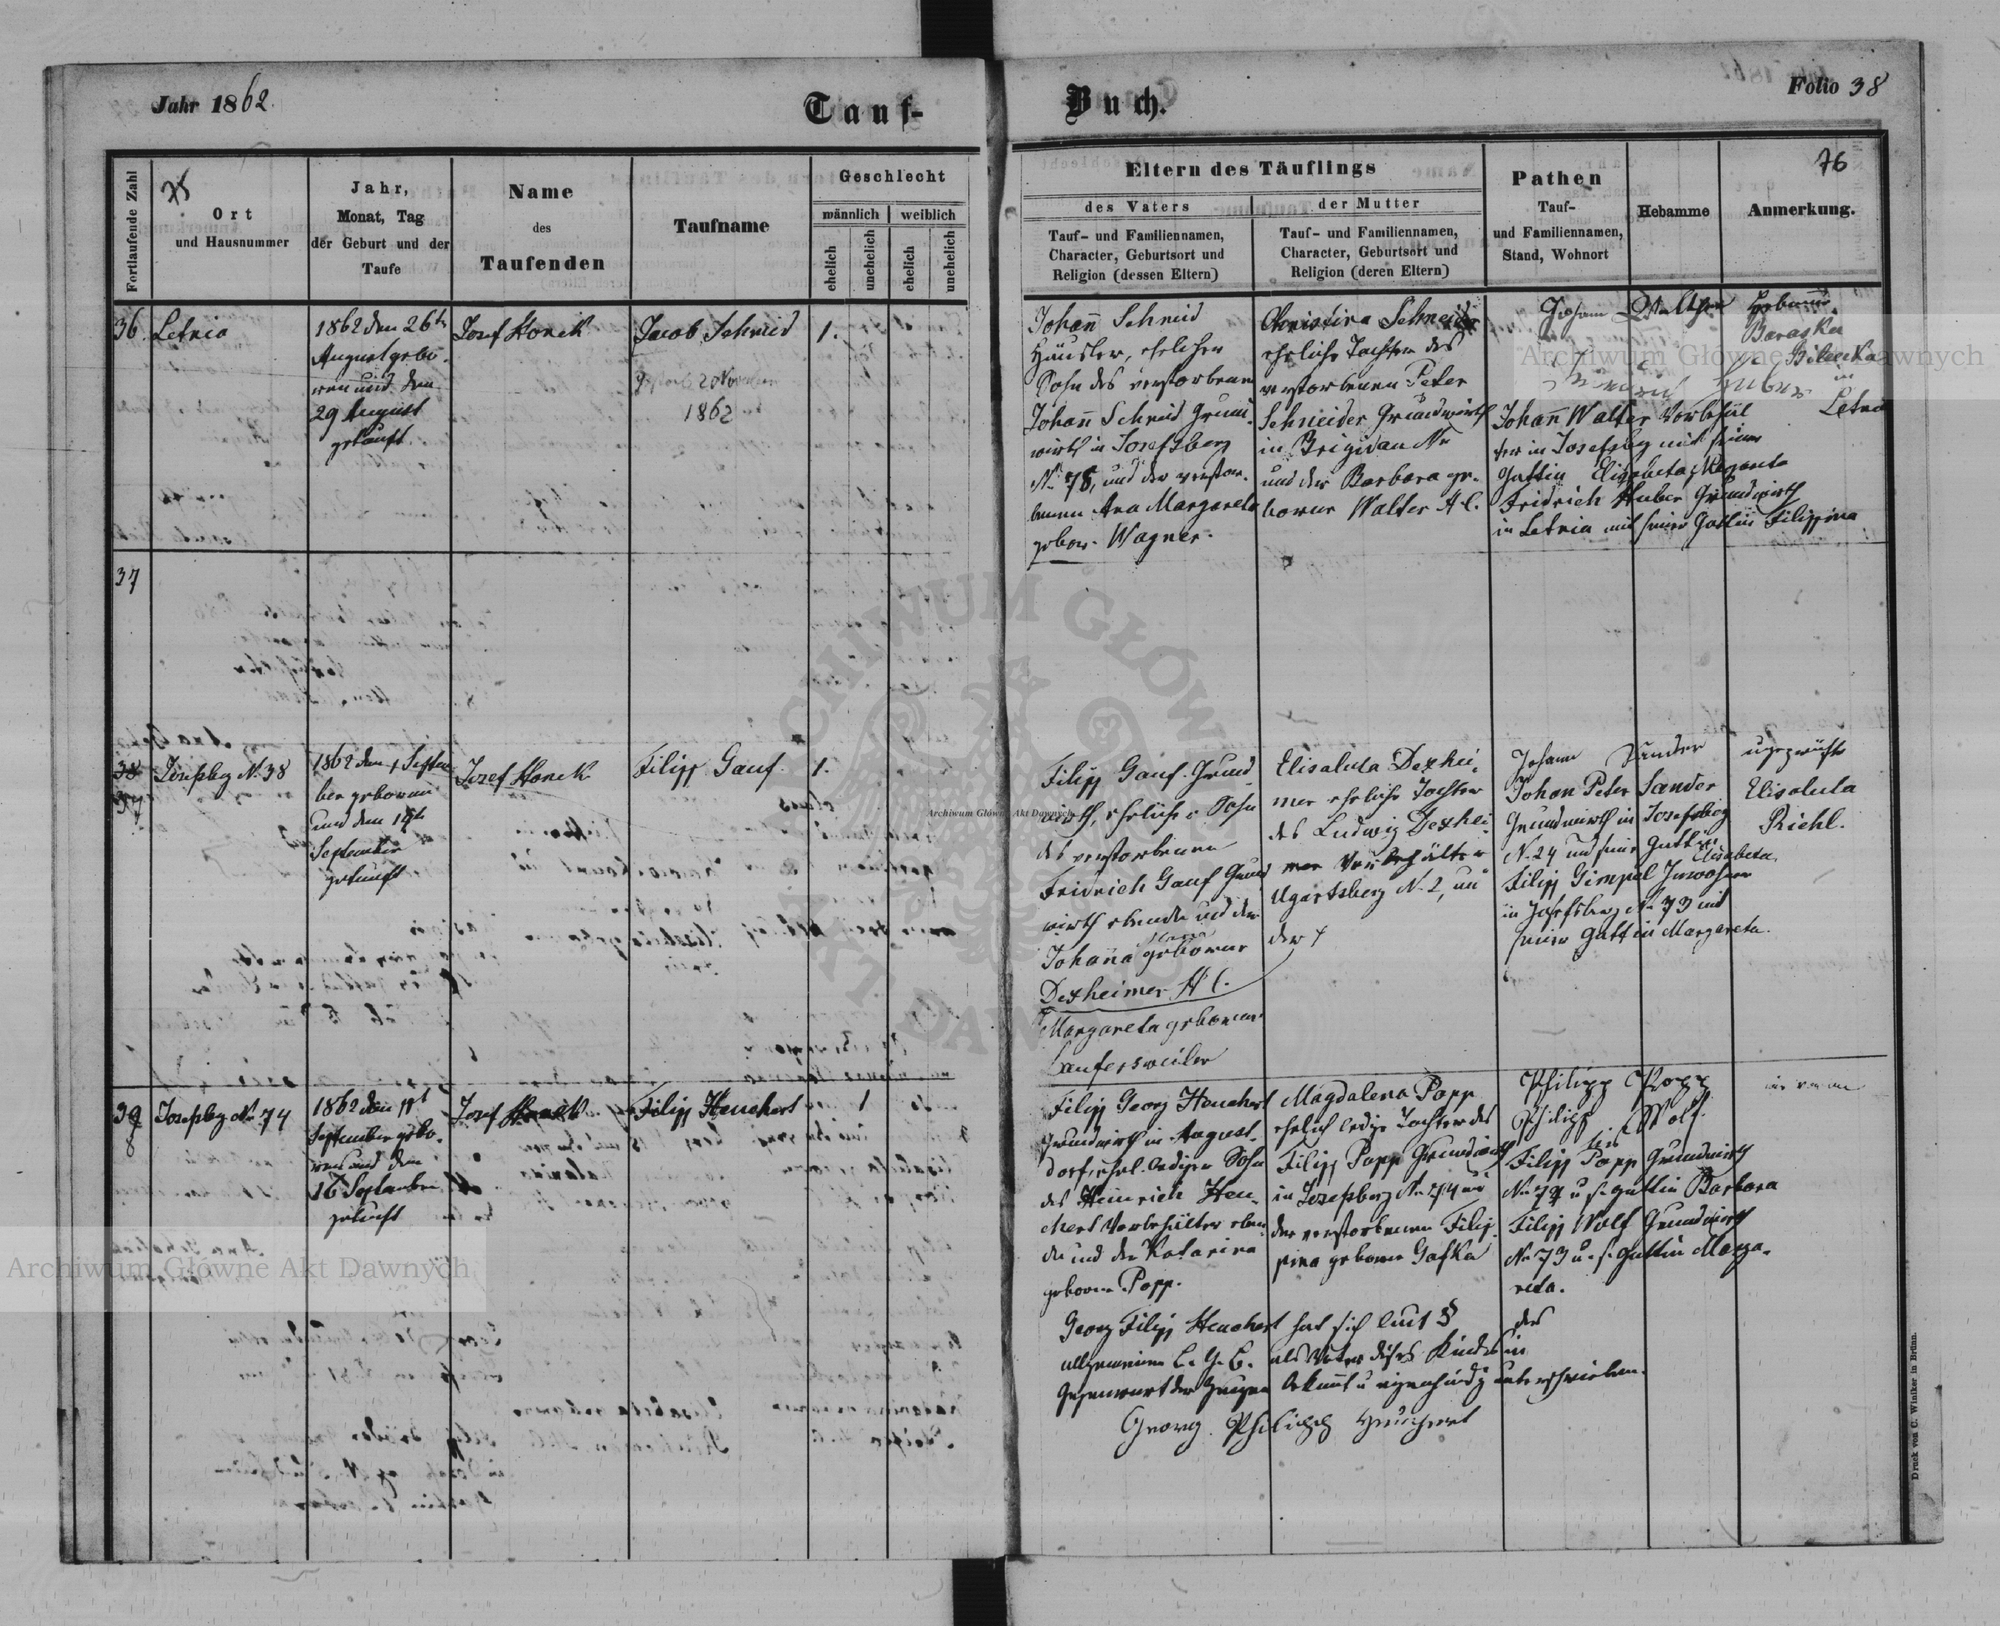 Jahr 1862.
Tauf-
Buch.
Folio 38
Fortlaufende Zahl
75
Ort
und Hausnummer
Jahr,
Monat, Tag
der Geburt und der
Taufe
Name
des
Taufenden
Taufname
Geschlecht
männlich
weiblich
ehelich
unehelich
ehelich
unehelich
Eltern des Täuflings
des Vaters
Tauf- und Familiennamen,
Character, Geburtsort und
Religion (dessen Eltern)
der Mutter
Tauf- und Familiennamen,
Character, Geburtsort und
Religion (deren Eltern)
Pathen
Tauf-
und Familiennamen,
Stand, Wohnort
Hebamme
76
Anmerkung.
36.
Letnia
1862 den 26t
August gebo-
ren und den
29 August
getauft
Josef Honek
Jacob Schmid
20 November
1862
1.
Johann Schmid
Häusler, ehelicher
Sohn des verstorbenen
Johann Schmid Grund-
wirth in Josefsberg
N. 78, und der verstor-
benen Ana Margareta
gebor. Wagner.
Christina Schneider
eheliche Tochter des
verstorbenen Peter
Schneider Grundwirth
in Brigidau
und der Barbara ge-
borene Walter A C.
Johann Walther
Huber
Johann Walter Vorbehäl
ter in Josefsbg mit seiner
Gattin Elisabeta Margareta
Fridrich Huber Grundwirth
in Letnia mit seiner Gattin Filippina
Baraska
Bileckа
in
Letnia
37
38
37
Josefsbg N. 38
1862 den 1 Septem
ber geboren
und den
September
getauft
Josef Honek
Filipp Gauf
1.
Filipp Gauf. Grund
wirth, ehelicher Sohn
des verstorbenen
Fridrich Gauf Grund
wirth und der
Johanna geborene
Dexheimer A C.
Margareta geborene
Laufersweiler
Elisabeta Dexhei-
mer eheliche Tochter
des Ludwig Dexhei-
mer Vorbehälter
Ugartsberg N. 2, und
der †
Johann Sander
Johan Peter Sander
Grundwirth in Josefsberg
N. 24 und seine Gattin
Elisabeta.
Filipp Gimpel Inwohner
in Josefsberg N. 73 mit
seiner Gattin Margareta.
ungeprüfte
Elisabeta
Riehl.
39
8
Josefsbg N. 74
1862 den
September gebo-
ren und den
16 September
getauft
Josef Honek
Filipp Heuchert
1
Filipp Georg Heuchert
Grundwirth in August-
dorf, ehel. lediger Sohn
des Heinrich Heu
chert Vorbehälter eben
da und der Katarina
geborene Popp.
Magdalena Popp
ehelich ledige Tochter des
Filipp Popp Grundwirth
in Josefsberg N. 74 und
der verstorbenen Filip-
pina geborene Gafka
Philipp Popp
Philipp Wolf
Filipp Popp Grundwirth
N. 79 u s. Gattin Barbara
Filipp Wolf Grundwirth
N. 73 u. s. Gattin Marga-
reta.
Georg Filipp Heuchert hat sich laut § des
allgemeinen b. G. B. als Vater dieses Kindes in
Gegenwart der Zeugen bekannt u eigenhändig unterschrieben.
Georg Philipp Heuchert
Druck von C. Winiker in Brünn.
Archiwum Główne Akt Dawnych
Archiwum Główne Akt Dawnych
Archiwum Główne Akt Dawnych
ARCHIWUM GŁÓWNE AKT DAWNYCH